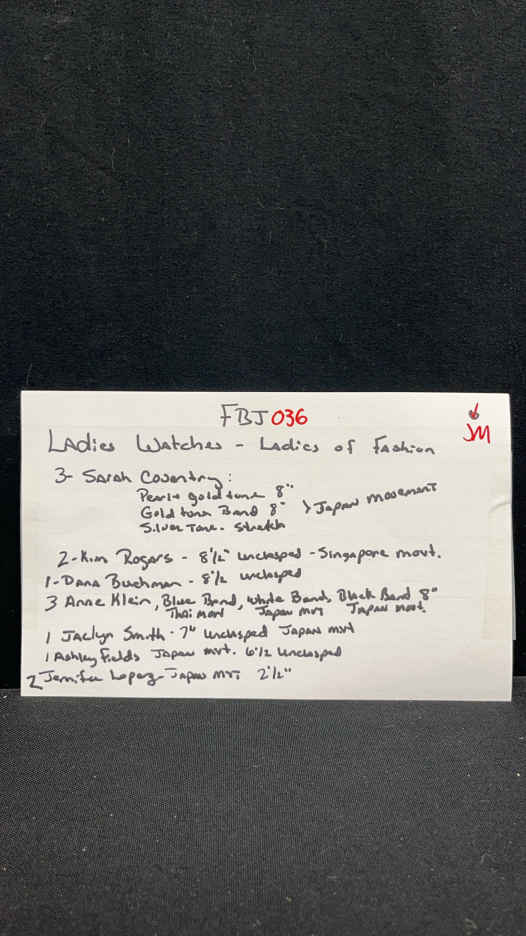 FBJ 036
JM
Ladies Watches - Ladies of Fashion
3- Sarah Coventry:
Pearl + gold tone 8"
Gold tone Band 8" > Japan movement
Silver Tone - Stretch
2- Kim Rogers - 8 1/2" unclasped - Singapore movt.
1- Dana Buchman - 8 1/2 unclasped
3 Anne Klein, Blue Band, White Band, Black Band 8"
Thai movt Japan mvt Japan movt.
1 Jaclyn Smith - 7" unclasped Japan mvt
1 Ashley Fields Japan mvt. 6 1/2 unclasped
2 Jennifer Lopez - Japan mvt 2 1/2"